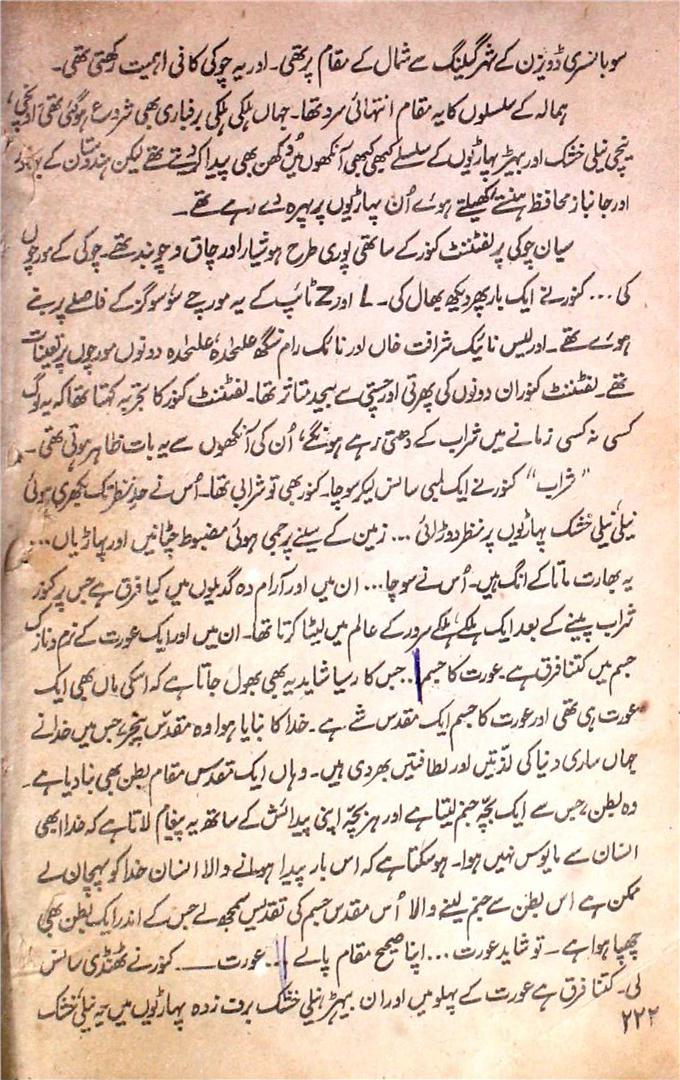 سوبانسری ڈویژن کے شہر گیلینگ سے شمال کے مقام پر تھی۔ اور یہ چوکی کافی اہمیت رکھتی تھی۔
ہمالہ کے سلسلوں کا یہ مقام انتہائی سرد تھا۔ جہاں ہلکی ہلکی برفباری بھی شروع ہوگئی تھی اونچی،
نیچی نیلی خشک اور بیہڑ پہاڑیوں کے سلسلے کبھی کبھی آنکھوں میں دُکھن بھی پیدا کر دیتے تھے لیکن ہندوستان کے بہادر
اور جانباز محافظ ہنستے کھیلتے ہوئے اُن پہاڑیوں پر پہرہ دے رہے تھے۔
سیان چوکی پر لفٹننٹ کنور کے ساتھی پوری طرح ہوشیار اور چاق و چوبند تھے۔ چوکی کے مورچوں
کی... کنور نے ایک بار پھر دیکھ بھال کی۔ L اور Z ٹائپ کے یہ مورچے سوسو گز کے فاصلے پر بنے
ہوئے تھے۔ اور لیس نائیک شرافت خاں اور نائک رام سنگھ علیٰحدہ، علیٰحدہ دونوں مورچوں پر تعینات
تھے۔ لفٹننٹ کنور ان دونوں کی پھرتی اور چستی سے بیحد متاثر تھا۔ لفٹننٹ کنور کا تجربہ کہتا تھا کہ یہ لوگ
کسی نہ کسی زمانے میں شراب کے دھتی رہے ہونگے، اُن کی آنکھوں سے یہ بات ظاہر ہوتی تھی۔
"شراب" کنور نے ایک لمبی سانس لیکر سوچا۔ کنور بھی تو شرابی تھا۔ اُس نے حدِ نظر تک بکھری ہوئی
نیلی نیلی خشک پہاڑیوں پر نظر دوڑائی... زمین کے سینے پر جمی ہوئی مضبوط چٹانیں اور پہاڑیاں...
یہ بھارت ماتا کے انگ ہیں۔ اُس نے سوچا... ان میں اور آرام دہ گدیلوں میں کیا فرق ہے جس پر کنور
شراب پینے کے بعد ایک ہلکے ہلکے سرور کے عالم میں لیٹا کرتا تھا۔ ان میں اور ایک عورت کے نرم و نازک
جسم میں کتنا فرق ہے۔ عورت کا جسم... جس کا رسیا شاید یہ بھی بھول جاتا ہے کہ اسکی ماں بھی ایک
عورت ہی تھی اور عورت کا جسم ایک مقدس شے ہے۔ خدا کا بنایا ہوا وہ مقدّس پنجر، جس میں خدا نے
جہاں ساری دنیا کی لذتیں اور لطافتیں بھر دی ہیں۔ وہاں ایک مقدس مقام بطن بھی بنا دیا ہے۔
وہ بطن، جس سے ایک بچّہ جنم لیتا ہے اور ہر بچّہ اپنی پیدائش کے ساتھ یہ پیغام لاتا ہے کہ خدا ابھی
انسان سے مایوس نہیں ہوا۔ ہو سکتا ہے کہ اس بار پیدا ہونے والا انسان خدا کو پہچان لے
ممکن ہے اس بطن سے جنم لینے والا اُس مقدس جسم کی تقدیس سمجھ لے جس کے اندر ایک بطن بھی
چھپا ہوا ہے۔ تو شاید عورت... اپنا صحیح مقام پالے... عورت ــــ کنور نے ٹھنڈی سانس
لی۔ کتنا فرق ہے عورت کے پہلو میں اور ان بیہڑ، نیلی خشک برف زدہ پہاڑیوں میں یہ نیلی خشک
۲۲۲